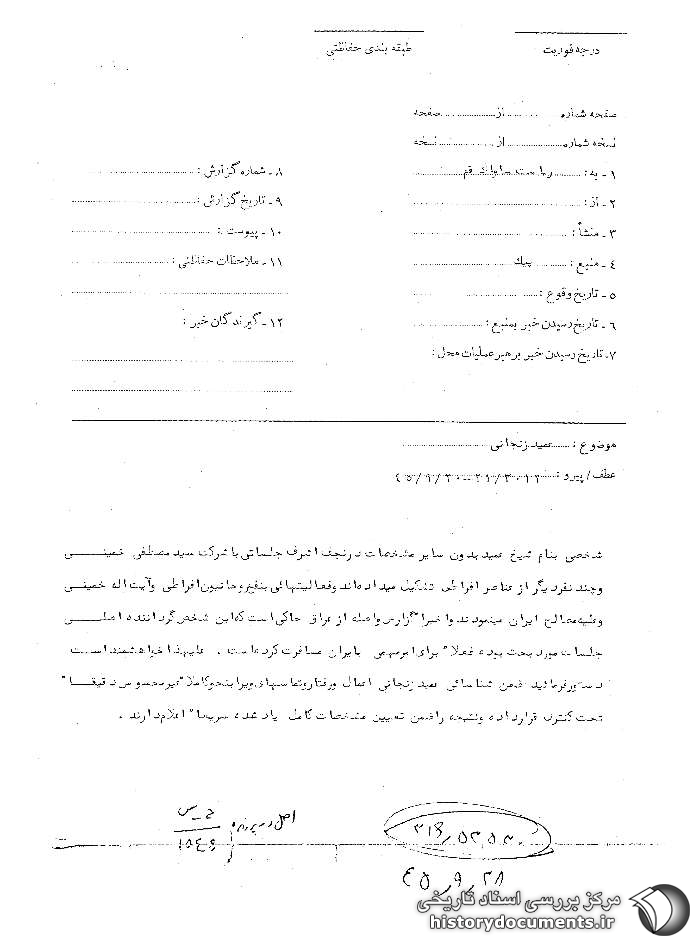 درجه فوریت
طبقه بندی حفاظتی
صفحه شماره ........ از ........ صفحه
نسخه شماره ........ از ........ نسخه
۱ - به : ریاست ساواک قم
۲ - از :
۳ - منشأ :
۴ - منبع : پیک
۵ - تاریخ وقوع :
۶ - تاریخ رسیدن خبر بمنبع :
۷ - تاریخ رسیدن خبر برهبر عملیات محل :
۸ - شماره گزارش :
۹ - تاریخ گزارش :
۱۰ - پیوست :
۱۱ - ملاحظات حفاظتی :
۱۲ - گیرندگان خبر :
موضوع : عمید زنجانی
عطف / پیرو :
شخصی بنام شیخ عمید بدون سایر مشخصات در نجف اشرف جلساتی با شرکت سید مصطفی خمینی
و چند نفر دیگر از عناصر افراطی تشکیل میداده‌اند و فعالیتهائی بنفع روحانیون افراطی و آیت اله خمینی
و علیه مصالح ایران مینمودند و اخیرا" گزارش واصله از عراق حاکی است که این شخص گرداننده اصلی
جلسات مورد بحث بوده فعلا" برای امر مهمی بایران مسافرت کرده است . علیهذا خواهشمند است
دستور فرمائید ضمن شناسائی عمید زنجانی اعمال و رفتار و تماسهای ویرا بنحو کاملا" غیر محسوس دقیقا"
تحت کنترل قرار داده و نتیجه را ضمن تعیین مشخصات کامل یاد شده سریعا" اعلام دارند .
اصل در پرونده
۴۵/۹/۲۸
مرکز بررسی اسناد تاریخی
historydocuments.ir